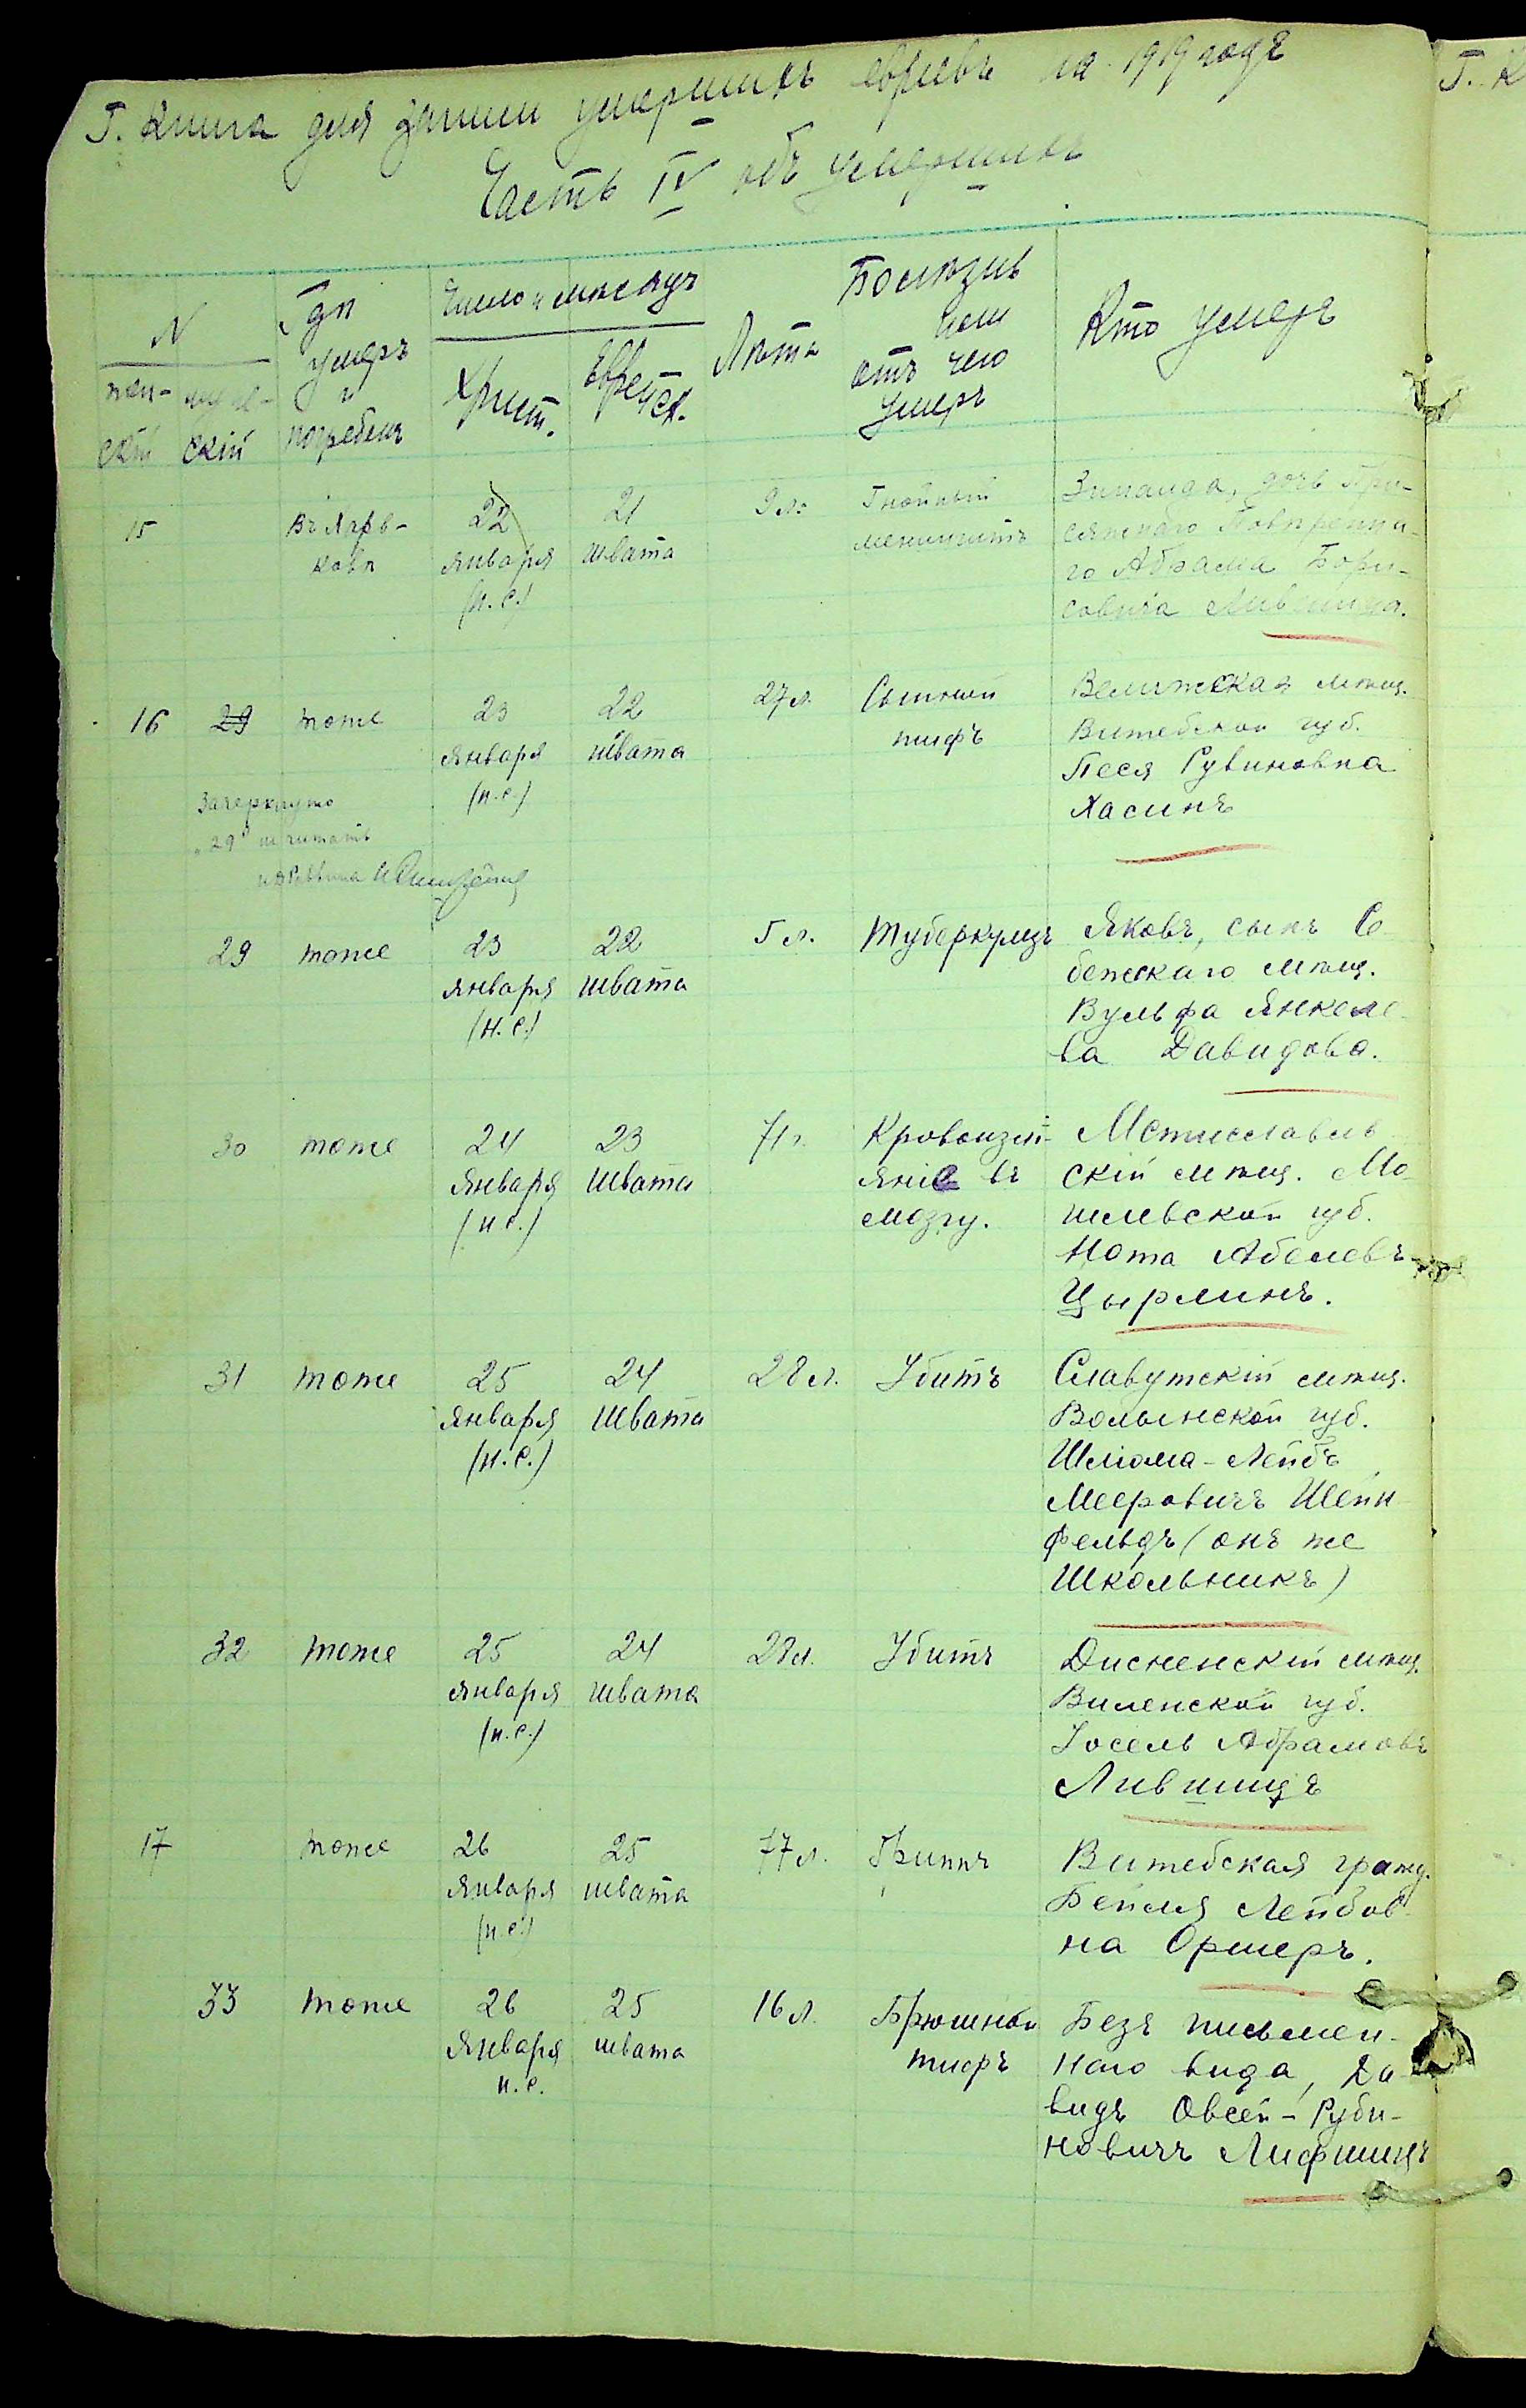 Г. Книга для записи умершихъ евреевъ на 1919 годъ
Часть IV объ умершихъ
N
жен-
скій
муж-
скій
Гдѣ
умеръ
и
погребенъ
Число и мѣсяцъ
Христ.
Еврейск.
Лѣта
Болѣзнь
или
отъ чего
умеръ
Кто умеръ
15
въ Харь-
ковѣ
22
января
(н. с.)
21
швата
9 л.
Гнойный
менингитъ
Зинаида, дочь При-
сяжнаго Повѣренна-
го Абрама Бори-
совича Лившица.
16
29
тоже
23
января
(н. с.)
22
швата
27 л.
Сыпной
тифъ
Велижская мѣщ.
Витебской губ.
Песя Рувиновна
Хасинъ
Зачеркнуто
„29" не читать
29
тоже
23
января
(н. с.)
22
швата
5 л.
Туберкулезъ
Яковъ, сынъ Се
бежскаго мѣщ.
Вульфа Янкеле-
ва Давидова.
30
тоже
24
января
(н. с.)
23
Швата
71 г.
Кровоизлі-
яніе въ
мозгу.
Мстиславль
скій мѣщ. Мо
гилевской губ.
Нота Абелевъ
Цырлинъ.
31
тоже
25
января
(н. с.)
24
Швата
28 л.
Убитъ
Славутскій мѣщ.
Волынской губ.
Шлiома-Лейбъ
Мееровичъ Шейн
фельдъ (онъ же
Школьникъ)
32
тоже
25
января
(н. с.)
24
швата
28 л.
Убитъ
Дисненскій мѣщ.
Виленской губ.
Іосель Абрамовъ
Лившицъ
17
тоже
26
января
(н. с.)
25
швата
77 л.
Гриппъ
Витебская гражд.
Бейля Лейбов-
на Оршеръ.
33
тоже
26
января
н. с.
25
швата
16 л.
Брюшной
тифъ
Безъ письмен-
наго вида, Да-
видъ Овсей-Руби-
новичъ Лифшицъ
Г. К